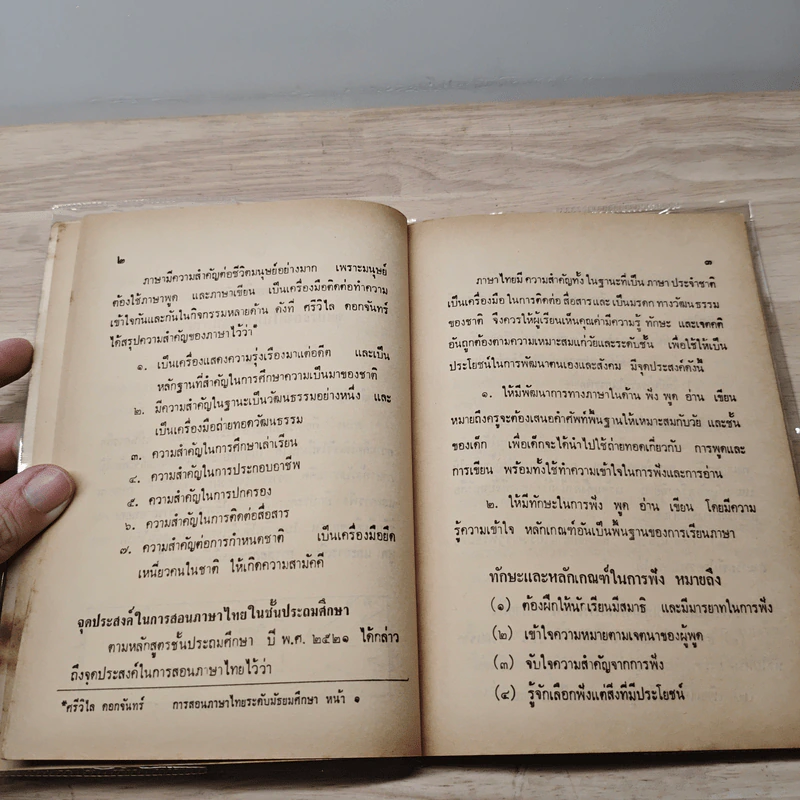 ๒
ภาษามีความสำคัญต่อชีวิตมนุษย์อย่างมาก เพราะมนุษย์
ต้องใช้ภาษาพูด และภาษาเขียน เป็นเครื่องมือติดต่อทำความ
เข้าใจกันและกันในกิจกรรมหลายด้าน ดังที่ ศรีวิไล ดอกจันทร์
ได้สรุปความสำคัญของภาษาไว้ว่า*
๑. เป็นเครื่องแสดงความรุ่งเรืองมาแต่อดีต และเป็น
หลักฐานที่สำคัญในการศึกษาความเป็นมาของชาติ
๒. มีความสำคัญในฐานะเป็นวัฒนธรรมอย่างหนึ่ง และ
เป็นเครื่องมือถ่ายทอดวัฒนธรรม
๓. ความสำคัญในการศึกษาเล่าเรียน
๔. ความสำคัญในการประกอบอาชีพ
๕. ความสำคัญในการปกครอง
๖. ความสำคัญในการติดต่อสื่อสาร
๗. ความสำคัญต่อการกำหนดชาติ เป็นเครื่องมือยึด
เหนี่ยวคนในชาติ ให้เกิดความสามัคคี
จุดประสงค์ในการสอนภาษาไทยในชั้นประถมศึกษา
ตามหลักสูตรชั้นประถมศึกษา ปี พ.ศ. ๒๕๒๑ ได้กล่าว
ถึงจุดประสงค์ในการสอนภาษาไทยไว้ว่า
*ศรีวิไล ดอกจันทร์ การสอนภาษาไทยระดับมัธยมศึกษา หน้า ๑
๓
ภาษาไทยมีความสำคัญทั้งในฐานะที่เป็นภาษาประจำชาติ
เป็นเครื่องมือในการติดต่อสื่อสารและเป็นมรดกทางวัฒนธรรม
ของชาติ จึงควรให้ผู้เรียนเห็นคุณค่ามีความรู้ ทักษะ และเจตคติ
อันถูกต้องตามความเหมาะสมแก่วัยและระดับชั้น เพื่อใช้ให้เป็น
ประโยชน์ในการพัฒนาตนเองและสังคม มีจุดประสงค์ดังนี้
๑. ให้มีพัฒนาการทางภาษาในด้าน ฟัง พูด อ่าน เขียน
หมายถึงครูจะต้องเสนอคำศัพท์พื้นฐานให้เหมาะสมกับวัย และชั้น
ของเด็ก เพื่อเด็กจะได้นำไปใช้ถ่ายทอดเกี่ยวกับ การพูดและ
การเขียน พร้อมทั้งใช้ทำความเข้าใจในการฟังและการอ่าน
๒. ให้มีทักษะในการฟัง พูด อ่าน เขียน โดยมีความ
รู้ความเข้าใจ หลักเกณฑ์อันเป็นพื้นฐานของการเรียนภาษา
ทักษะและหลักเกณฑ์ในการฟัง หมายถึง
(๑) ต้องฝึกให้นักเรียนมีสมาธิ และมีมารยาทในการฟัง
(๒) เข้าใจความหมายตามเจตนาของผู้พูด
(๓) จับใจความสำคัญจากการฟัง
(๔) รู้จักเลือกฟังแต่สิ่งที่มีประโยชน์